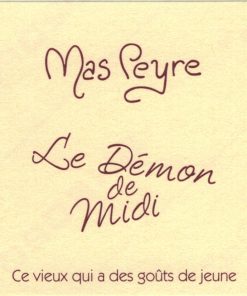 Mas Peyre
Le Démon
de
Midi
Ce vieux qui a des goûts de jeune